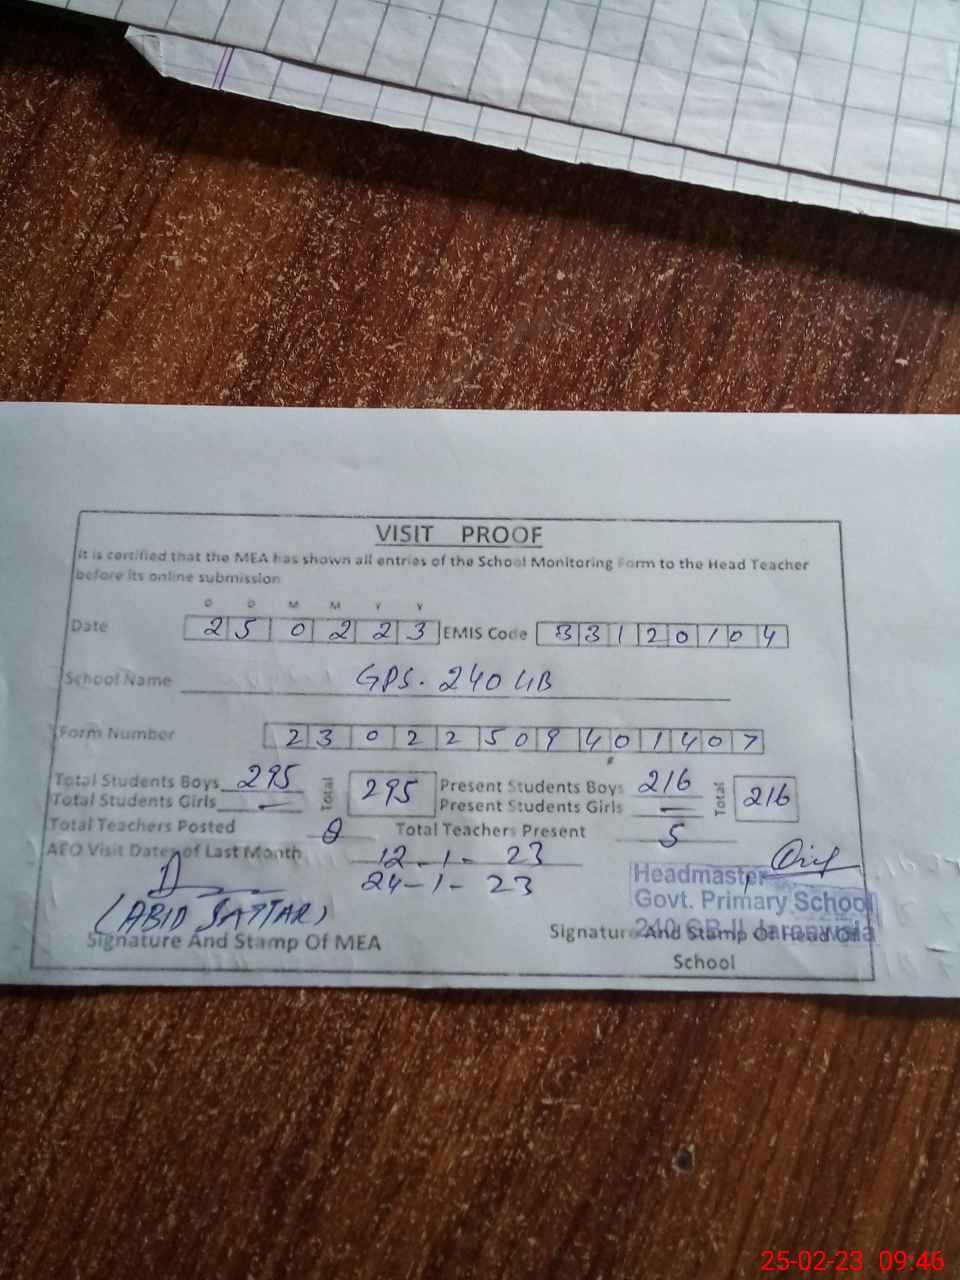 VISIT PROOF
It is certified that the MEA has shown all entries of the School Monitoring Form to the Head Teacher
before its online submission
D D M M Y Y
Date 2 5 0 2 2 3 EMIS Code 3 3 1 2 0 1 0 4
School Name GPS. 240 GB
Form Number 2 3 0 2 2 5 0 9 4 0 1 4 0 7
Total Students Boys 295 Total 295 Present Students Boys 216 Total 216
Total Students Girls — Present Students Girls —
Total Teachers Posted Total Teachers Present 5
AEO Visit Dates of Last Month 12-1-23
24-1-23
Headmaster
Govt. Primary School
240 GB-II Jaranwala
(ABID SATTAR)
Signature And Stamp Of MEA
Signature And Stamp Of Head Of
School
25-02-23 09:46